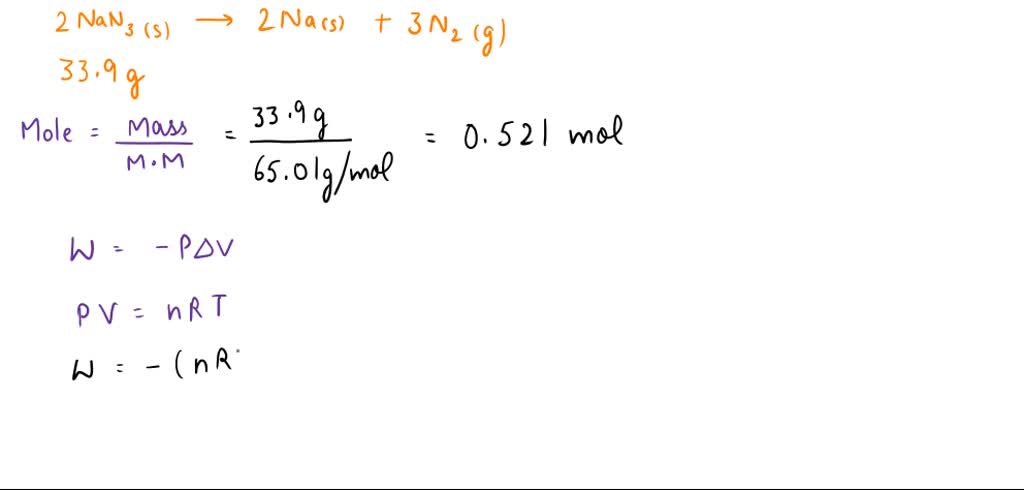 2 NaN3 (s) → 2 Na (s) + 3 N2 (g)
33.9 g
Mole = Mass / M.M = 33.9 g / 65.01 g/mol = 0.521 mol
W = - P Δ V
P V = n R T
W = - ( n R